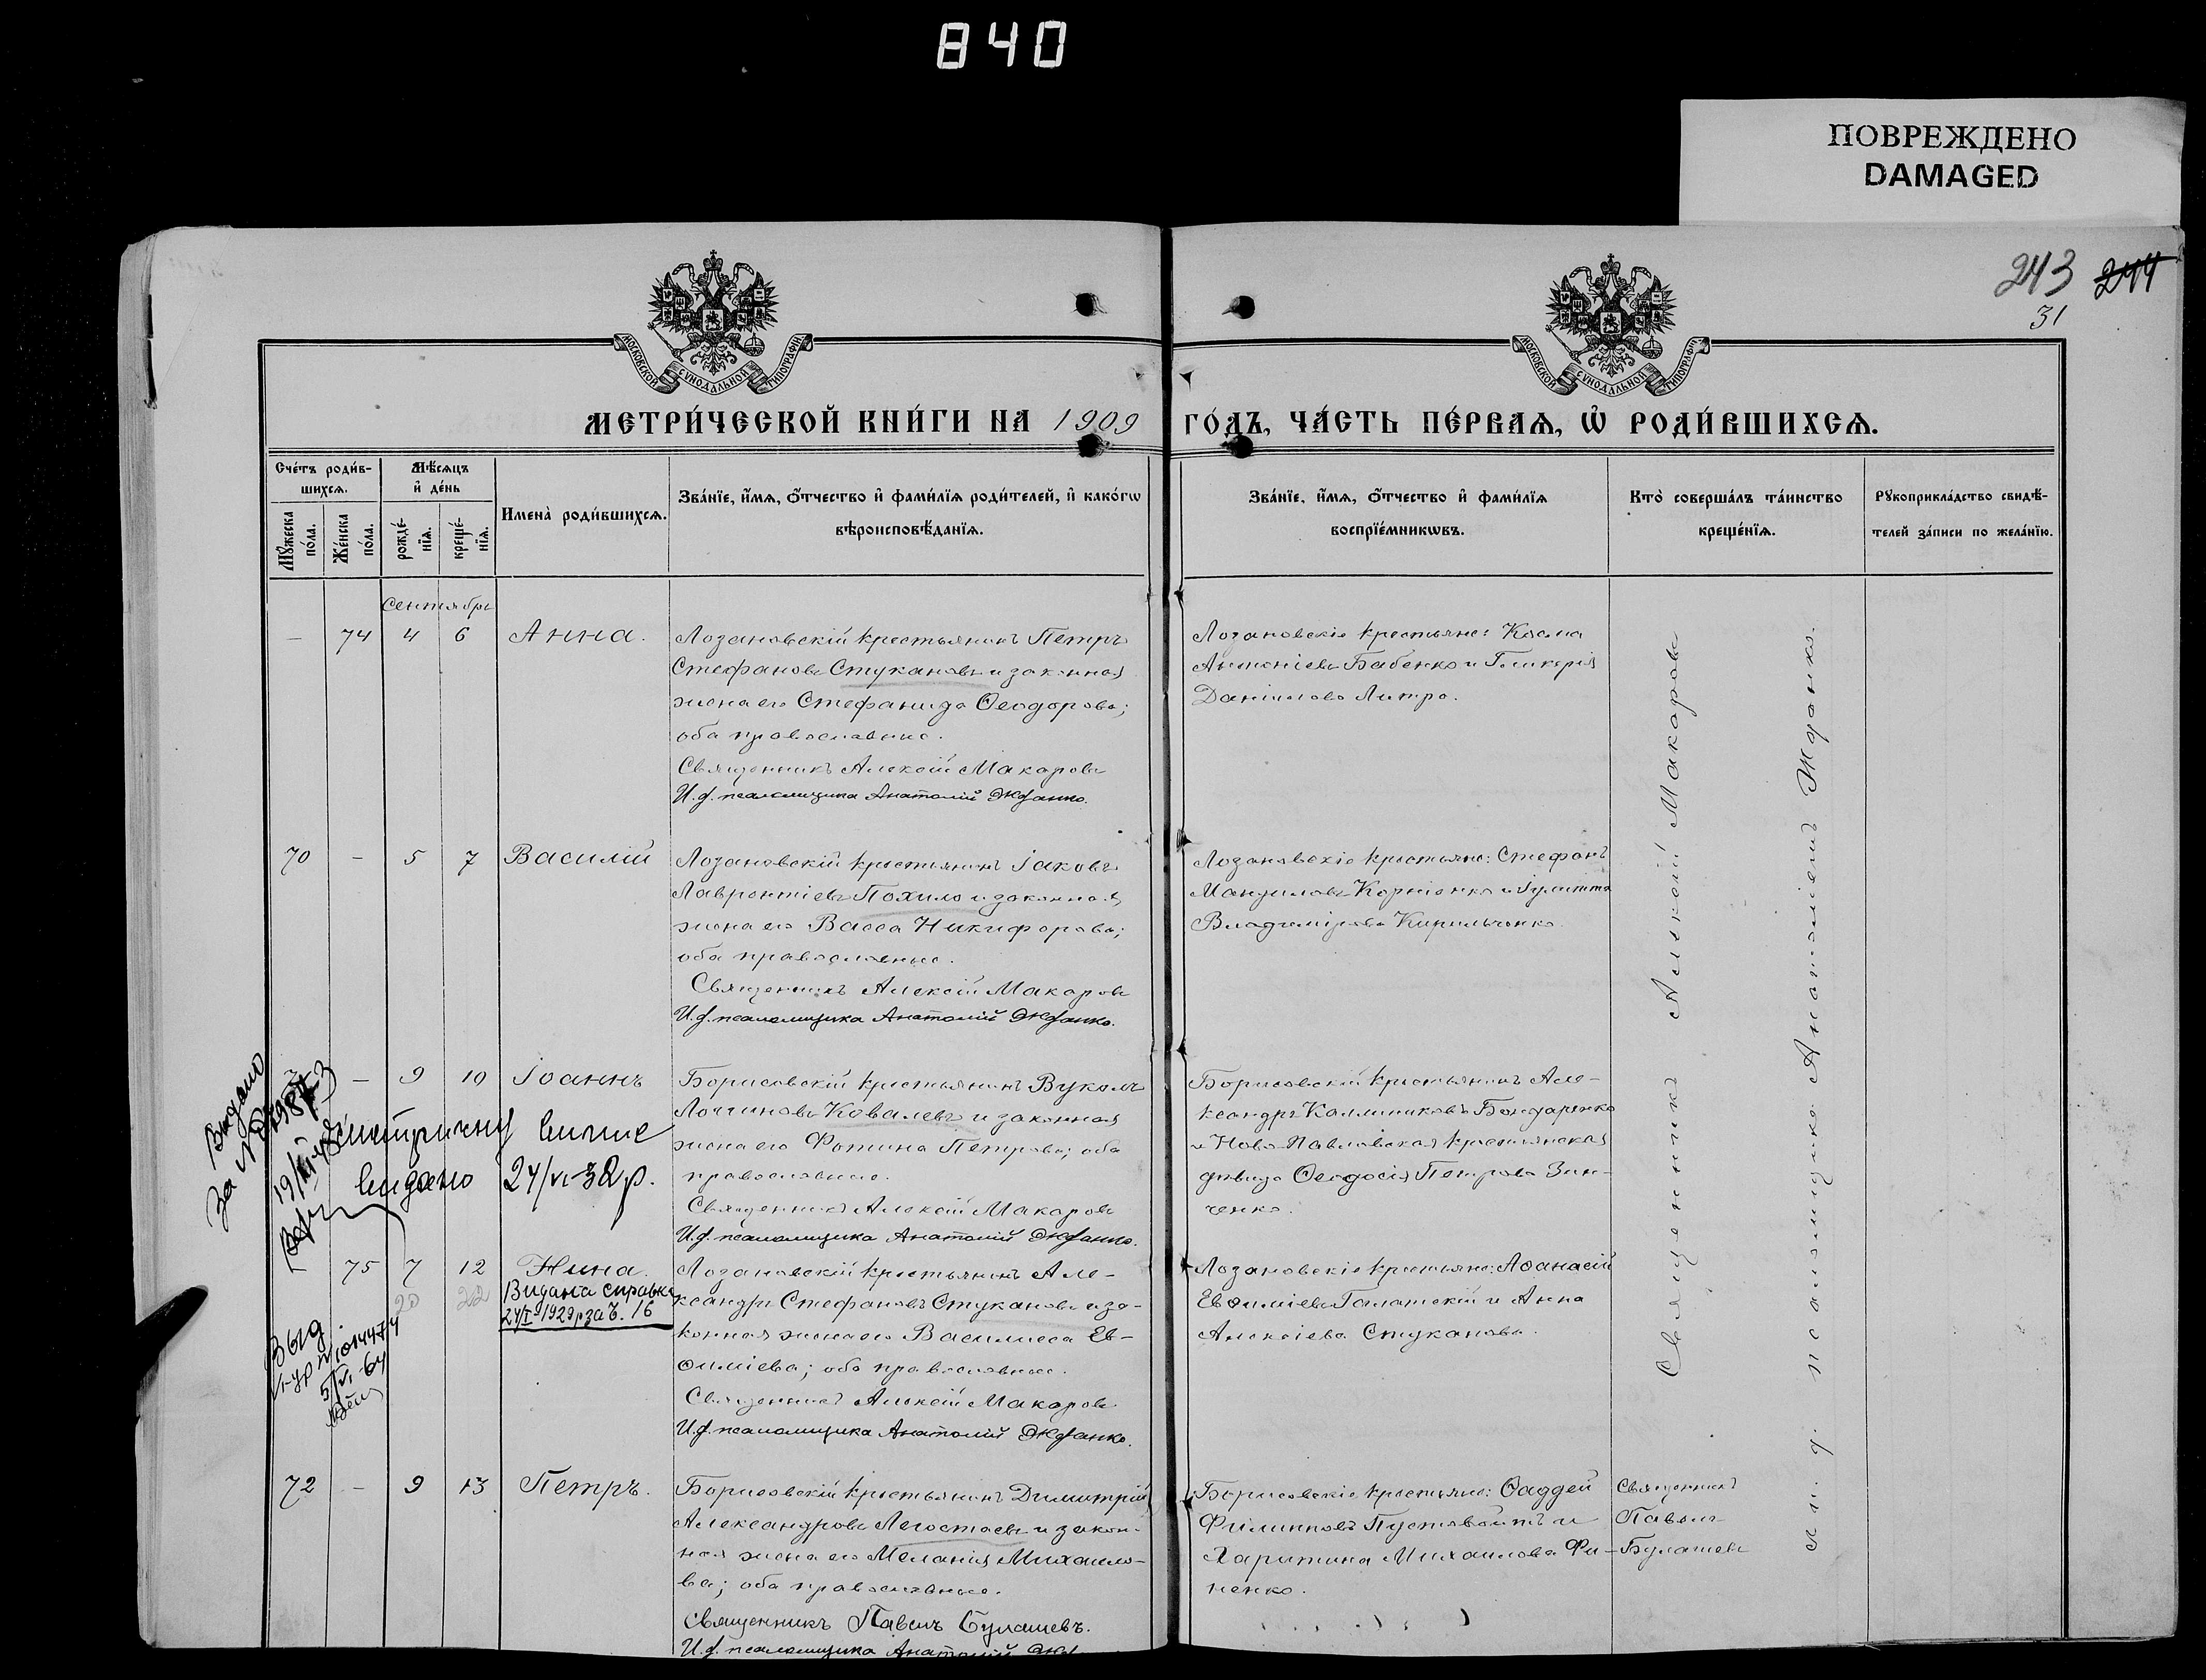 840
ПОВРЕЖДЕНО
DAMAGED
243 244
31
МОСКОВСКОЙ СѴНОДАЛЬНОЙ ТИПОГРАФІИ
МОСКОВСКОЙ СѴНОДАЛЬНОЙ ТИПОГРАФІИ
МЕТРИ́ЧЕСКОЙ КНИ́ГИ НА 1909 ГО́ДЪ, ЧА́СТЬ ПЕ́РВАѦ, Ѡ҆ РОДИ́ВШИХСѦ.
Сче́тъ роди́в-
шихсѧ.
Мꙋ́жеска по́ла.
Же́нска по́ла.
Мѣ́сѧцъ
и҆ де́нь
рожде́-нїѧ.
креще́-нїѧ.
Имена̀ роди́вшихсѧ.
Зва́нїе, и҆́мѧ, ѻ҆́тчество и҆ фами́лїѧ роди́телей, и҆ како́гѡ
вѣроисповѣ́данїѧ.
Зва́нїе, и҆́мѧ, ѻ҆́тчество и҆ фами́лїѧ
воспрїе́мникѡвъ.
Кто̀ соверша́лъ та́инство
креще́нїѧ.
Рꙋкоприкла́дство свидѣ́-
телей за́писи по жела́нїю.
Сентябрь
— 74 4 6 Анна.
Лозановскій крестьянинъ Петръ
Стефановъ Стукановъ и законная
жена его Стефанида Ѳеодорова;
оба православные.
Священникъ Алексій Макаровъ
И. д. псаломщика Анатолій Жданко.
Лозановскіе крестьяне: Косма
Антоніевъ Бабенко и Гликерія
Даніилова Литро.
70 — 5 7 Василій
Лозановскій крестьянинъ Іаковъ
Лаврентіевъ Похило и законная
жена его Васса Никифорова;
оба православные.
Священникъ Алексій Макаровъ
И. д. псаломщика Анатолій Жданко.
Лозановскіе крестьяне: Стефанъ
Корніенко и Іулитта
Владимірова Кирильченко.
— 9 10 Іоаннъ
Борисовскій крестьянинъ Вуколъ
Логгиновъ Ковалевъ и законная
жена его Фотина Петрова; оба
православные.
Священникъ Алексій Макаровъ
И. д. псаломщика Анатолій Жданко.
Борисовскій крестьянинъ Але-
ксандръ Каллиниковъ Бондаренко
и Ново-Павловская крестьянская
дѣвица Ѳеодосія Петрова Зин-
ченко.
Выдано
за
19/
метричну випис
видано 24/VI-32р.
75 7 12 Нина.
20 22
Видана справка
24/I-1929р за Ч. 16
Лозановскій крестьянинъ Але-
ксандръ Стефановъ Стукановъ и за-
конная жена его Василисса Ев-
ѳиміева; оба православные.
Священникъ Алексій Макаровъ
И. д. псаломщика Анатолій Жданко.
Лозановскіе крестьяне: Аѳанасій
Евѳиміевъ Галатскій и Анна
Алексіева Стуканова.
Выд
5/VI-64
72 — 9 13 Петръ.
Борисовскій крестьянинъ Димитрій
Александровъ Легостаевъ и закон-
ная жена его Меланія Михаило-
ва; оба православные.
Священникъ Павелъ Булашевъ.
И. д. псаломщика Анатолій
Борисовскіе крестьяне: Ѳаддей
Филипповъ Пустовойтъ и
Харитина Михаилова Фи-
ненко.
Священникъ
Павелъ
Булашевъ
Священникъ Алексій Макаровъ
и. д. псаломщика Анатолій Жданко.